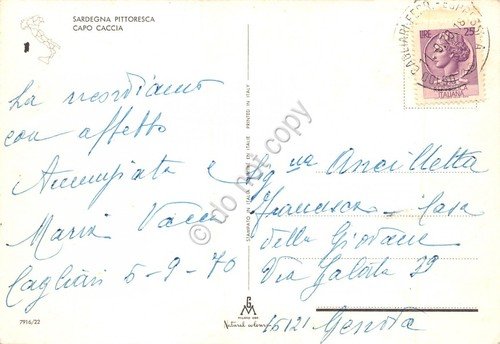 SARDEGNA PITTORESCA
CAPO CACCIA
1
La ricordiamo
con affetto
Annunziata e
Maria Vacca
Cagliari 5-9-70
7916/22
STAMPATO IN ITALIA PRINTED IN ITALY
MILANO
Natural colour
LIRE 25
ITALIANA
Sig.na Ancilletta
Francesca - Casa
della Giovane
Via Galata 39
16121 Genova
do not copy